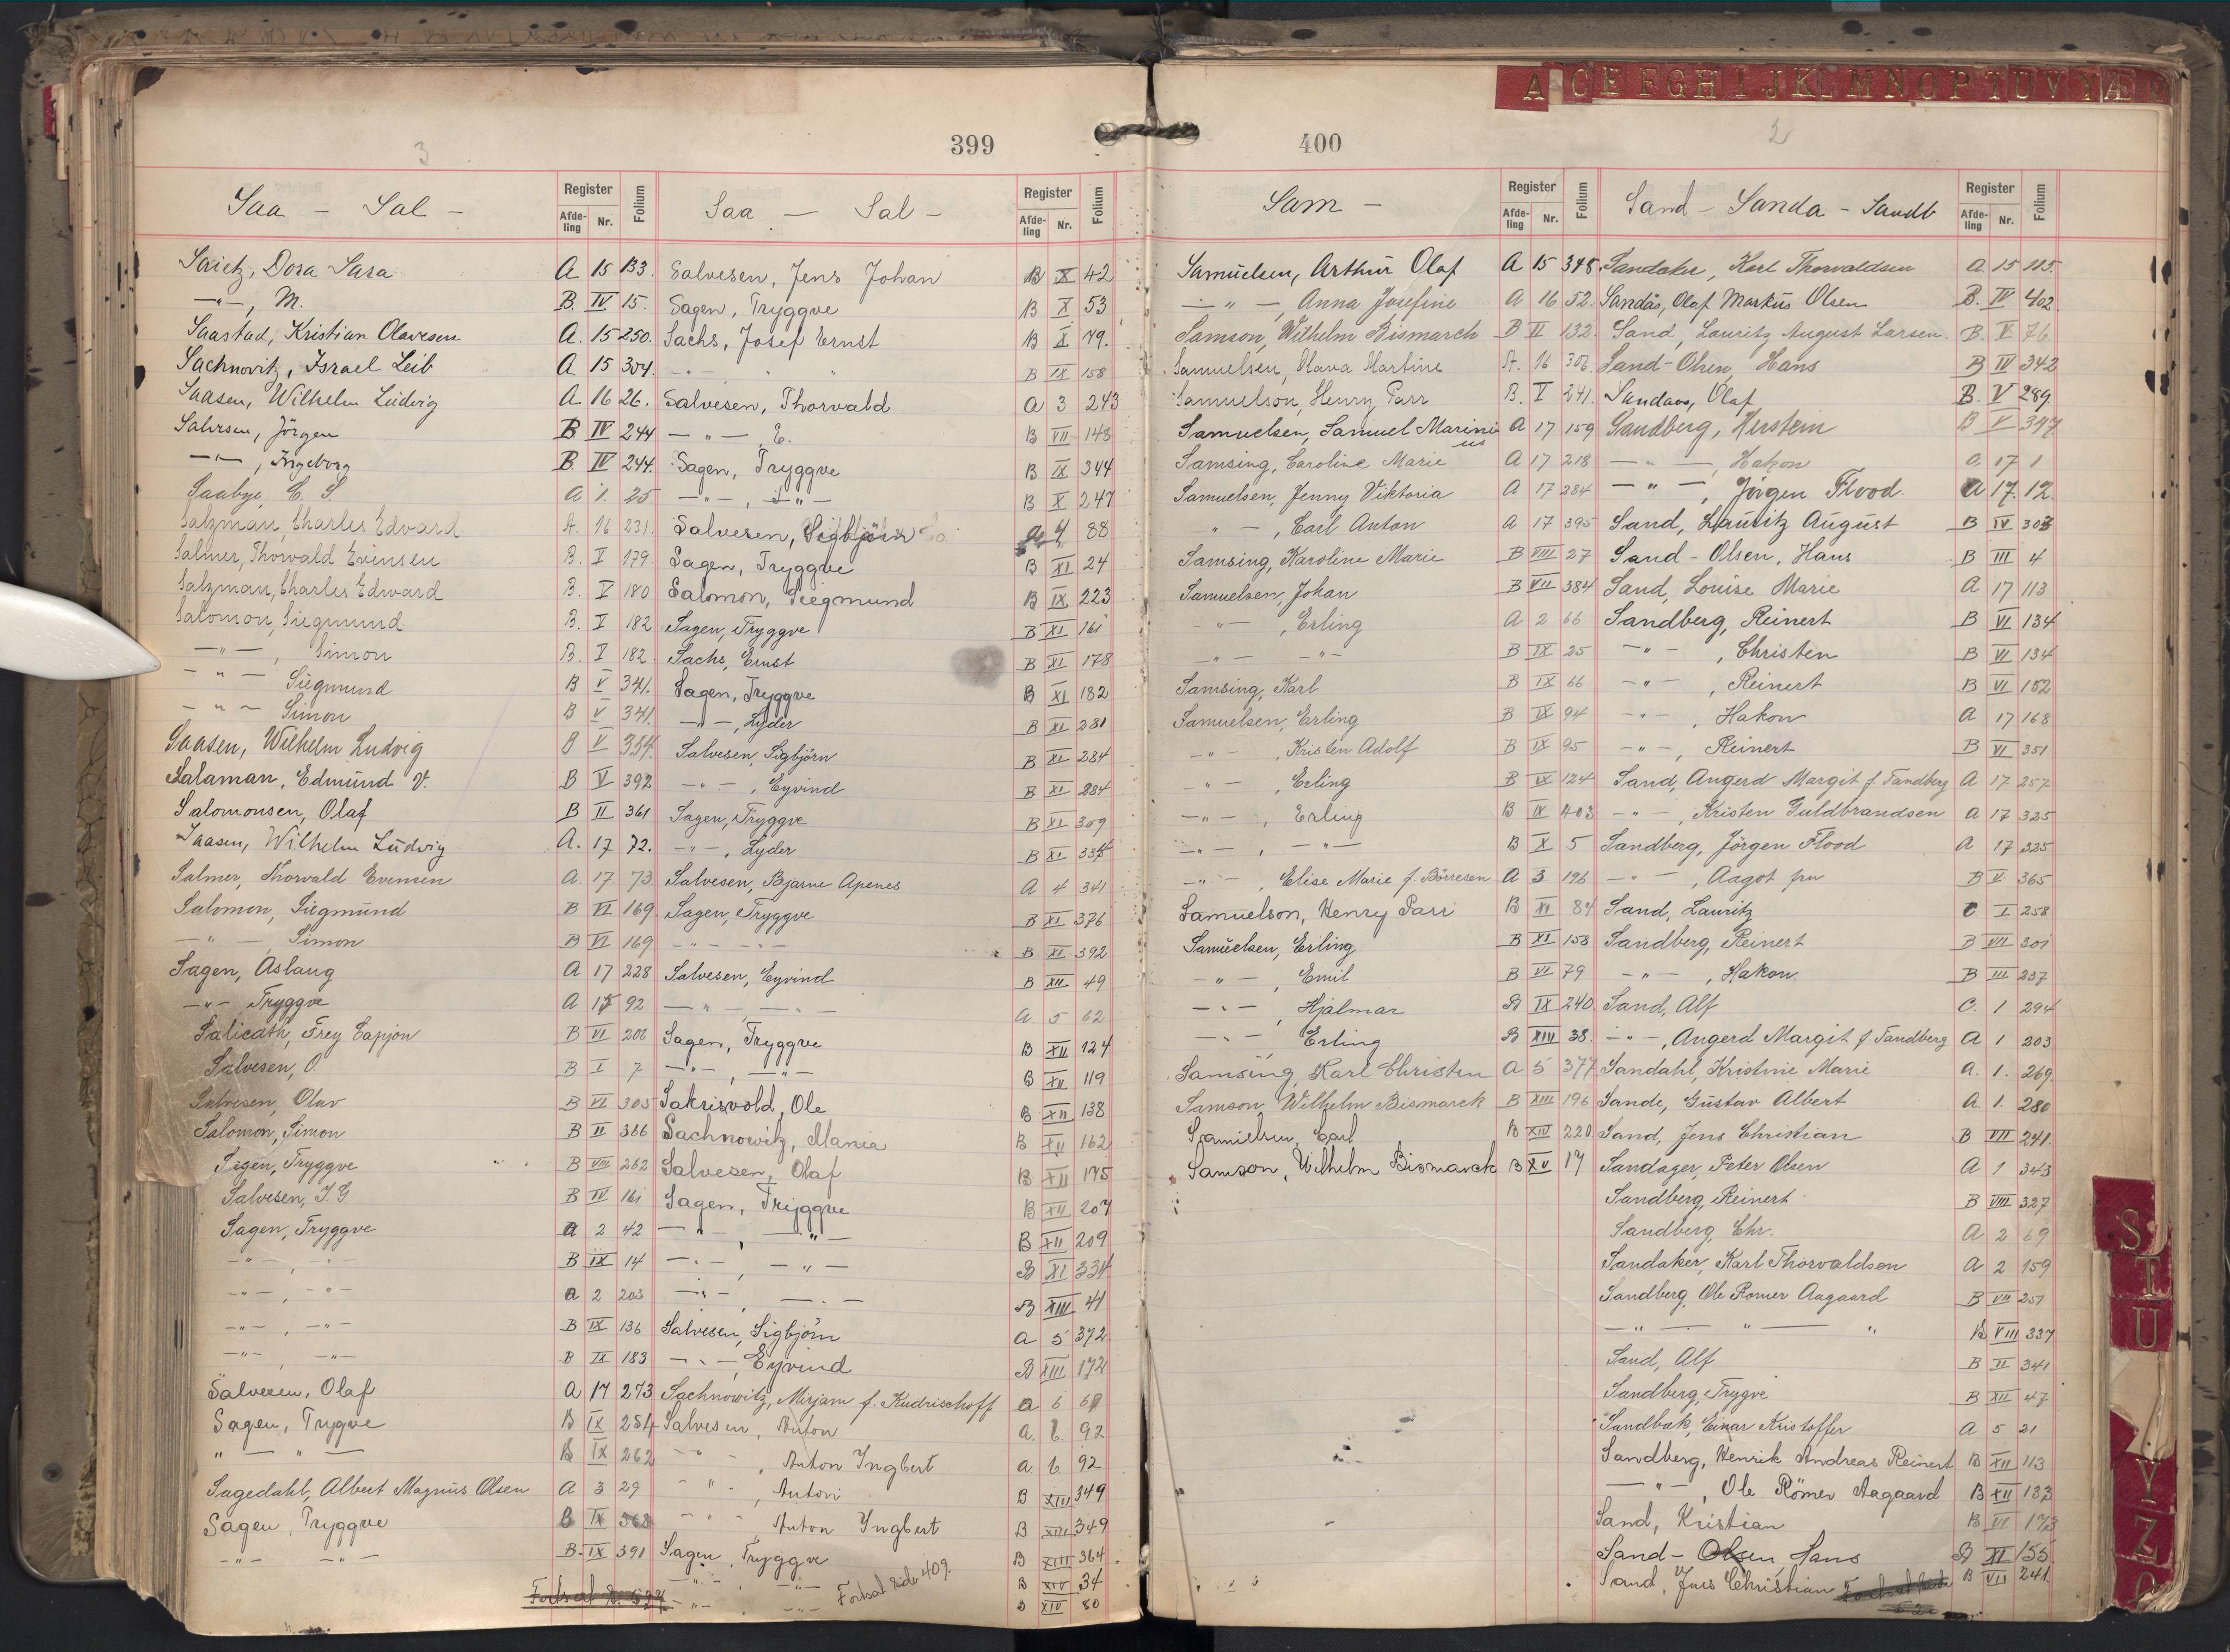 3
399
Saa - Sal -
Register
Afde-ling
Nr.
Folium
Saietz, Dora Sara A 15 133.
—"—, M. B. IV 15.
Saastad, Kristian Olavesen A. 15 250.
Sachnovitz, Israel Leib A 15 304.
Saasen, Wilhelm Ludvig A. 16 26.
Salvesen, Jörgen B IV 244
—"—, Ingeborg B. IV 244.
Saabye, C. S. A 1. 25
Salzman, Charles Edvard A. 16 231.
Salmer, Thorvald Evensen B. V 179
Salzman, Charles Edward B. V 180
Salomon, Siegmund B. V 182
—"—, Simon B. V 182
—"— Siegmund B V 341.
—"— Simon B V 341.
Saasen, Wilhelm Ludvig B V 354.
Salaman, Edmund V. B V 392
Salomonsen, Olaf B II 361
Saasen, Wilhelm Ludvig A. 17 72.
Salmer, Thorvald Evensen A. 17 73
Salomon, Siegmund B VI 169
—"—, Simon B VI 169
Sagen, Aslaug A 17 228
—"—, Tryggve A 15 92
Salicath, Frey Capjon B VI 206
Salvesen, O. B I 7
Salvesen, Olav B VI 305
Salomon, Simon B II 386
Sagen, Tryggve B VIII 262
Salvesen, I. G. B IV 161
Sagen, Tryggve A 2 42
—"—, —"— B IX 14
—"—, —"— A 2 203
—"—, —"— B IX 136
—"— —"— B IX 183
Salvesen, Olaf A 17 273
Sagen, Trygve B IX 254
" — " — B IX 262
Sagedahl, Albert Magnus Olsen A 3 29
Sagen, Tryggve B IX 368
—"— —"— B. IX 391
Saa — Sal -
Register
Afde-ling
Nr.
Folium
Salvesen, Jens Johan B X 42
Sagen, Tryggve B X 53
Sachs, Josef Ernst B X 79.
—"— " " B IX 158
Salvesen, Thorvald A 3 243
—"—, E. B VII 143
Sagen, Tryggve B IX 344
—"—, —"— B X 247
Salvesen, Sigbjörn A 4 88
Sagen, Tryggve B XI 24
Salomon, Siegmund B IX 223
Sagen, Tryggve B XI 161
Sachs, Ernst B XI 178
Sagen, Tryggve B XI 182
—"—, Lyder B XI 281
Salvesen, Sigbjörn B XI 284
—"—, Eyvind B XI 284
Sagen, Tryggve B XI 309
—"—, Lyder B XI 334
Salvesen, Bjarne Apenes A 4 341
Sagen, Tryggve B XI 376
—"— —"— B XI 392
Salvesen, Eyvind B XII 49
—"—, —"— A. 5 62
Sagen, Tryggve B XII 124
—"—, —"— B XII 119
Sakrisvold, Ole B XII 138
Sachnowitz, Mania B XII 162
Salvesen, Olaf B XII 175
Sagen, Tryggve B XII 207
—"—, —"— B XII 209
—"—, —"— B XI 334
—"— —"— B XIII 41
Salvesen, Sigbjörn A 5 372
—"—, Eyvind B XIII 172
Sachnowitz, Mirjam f. Kudrischoff A 6 67
Salvesen, Anton A. 6. 92
—"—, Anton Ingbert A. 6. 92
—"—, Anton B XIII 349
—"—, Anton Yngbert B XIII 349
Sagen, Tryggve B XIII 364
—"—, —"— B XIV 34
—"—, —"— Fortsat side 409. B XIV 80
400
2
A C E F G H I J K L M N O P T U V Y Æ
Sam -
Register
Afde-ling
Nr.
Folium
Samuelsen, Arthur Olaf A 15 348.
—"—, Anna Josefine A 16 52.
Samson, Wilhelm Bismarck B II 132.
Samuelsen, Olava Martine A. 16 306.
Samuelson, Henry Parr B. V 241.
Samuelsen, Samuel Marinius A 17 159
Samsing, Caroline Marie A 17 218
Samuelsen, Jenny Viktoria A 17 284
" —, Carl Anton A 17 395
Samsing, Karoline Marie B VIII 27
Samuelsen, Johan B VII 384
—"—, Erling A 2 66
—"— —"— B IX 25
Samsing, Karl B IX 66
Samuelsen, Erling B IX 94
—"—, Kristen Adolf B IX 95
—"—, Erling B IX 124
—"—, Erling B IX 403
—"—, —"— B X 5
—"—, Elise Marie f. Börresen A 3 196
Samuelson, Henry Parr B XI 84
Samuelsen, Erling B XI 158
—"—, Emil B VI 79
—"—, Hjalmar B IX 240
—"—, Erling B XIII 38.
Samsing, Karl Christen A 5 377
Samson, Wilhelm Bismarck B XIII 196
Samuelsen, Carl B XIV 220
Samson, Wilhelm Bismarck B XV 17
Sand - Sanda - Sandb
Register
Afde-ling
Nr.
Folium
Sandaker, Karl Thorvaldsen A. 15 115.
Sandås, Olaf Markus Olsen B. IV 402.
Sand, Lauritz August Larsen. B. V 76.
Sand-Olsen, Hans B IV 342
Sandaas, Olaf B. V 289
Sandberg, Kerstein B V 397
—"—, Hakon A. 17 1
—"—, Jörgen Flood. A 17. 12.
Sand, Lauritz August B IV 303
Sand-Olsen, Hans B III 4
Sand, Louise Marie A 17 113
Sandberg, Reinert B VI 134
—"—, Christen B VI 134
—"—, Reinert B VI 152
—"—, Hakon A 17 168
—"—, Reinert B VI 351
Sand, Angerd Margit f. Tandberg A. 17 257
—"—, Kristen Guldbrandsen A 17 325
Sandberg, Jörgen Flood A 17 325
—"—, Aagot fru B V 365
Sand, Lauritz C I 258
Sandberg, Reinert B VII 301
—"—, Hakon. B III 237
Sand, Alf C. 1 294
—"—, Angerd Margit f. Tandberg A 1 203
Sandahl, Kristine Marie A. 1. 269
Sande, Gustav Albert A. 1. 280
Sand, Jens Christian B VII 241.
Sandager, Peter Olsen A 1 343
Sandberg, Reinert B VIII 327
Sandberg, Chr. A 2 69
Sandaker, Karl Thorvaldsen A 2 159
Sandberg, Ole Romer Aagaard B VII 251
—"— " — " B VIII 337
Sand, Alf B II 341
Sandberg, Trygve B XII 47
Sandbak, Einar Kristoffer A 5 21
Sandberg, Henrik Andreas Reinert B XII 113
—"—, Ole Römer Aagaard B XII 133
Sand, Kristian B VI 173
Sand-Olsen, Hans B XI 155
Sand, Jens Christian B VII 241.
S
T
U
Y
Z